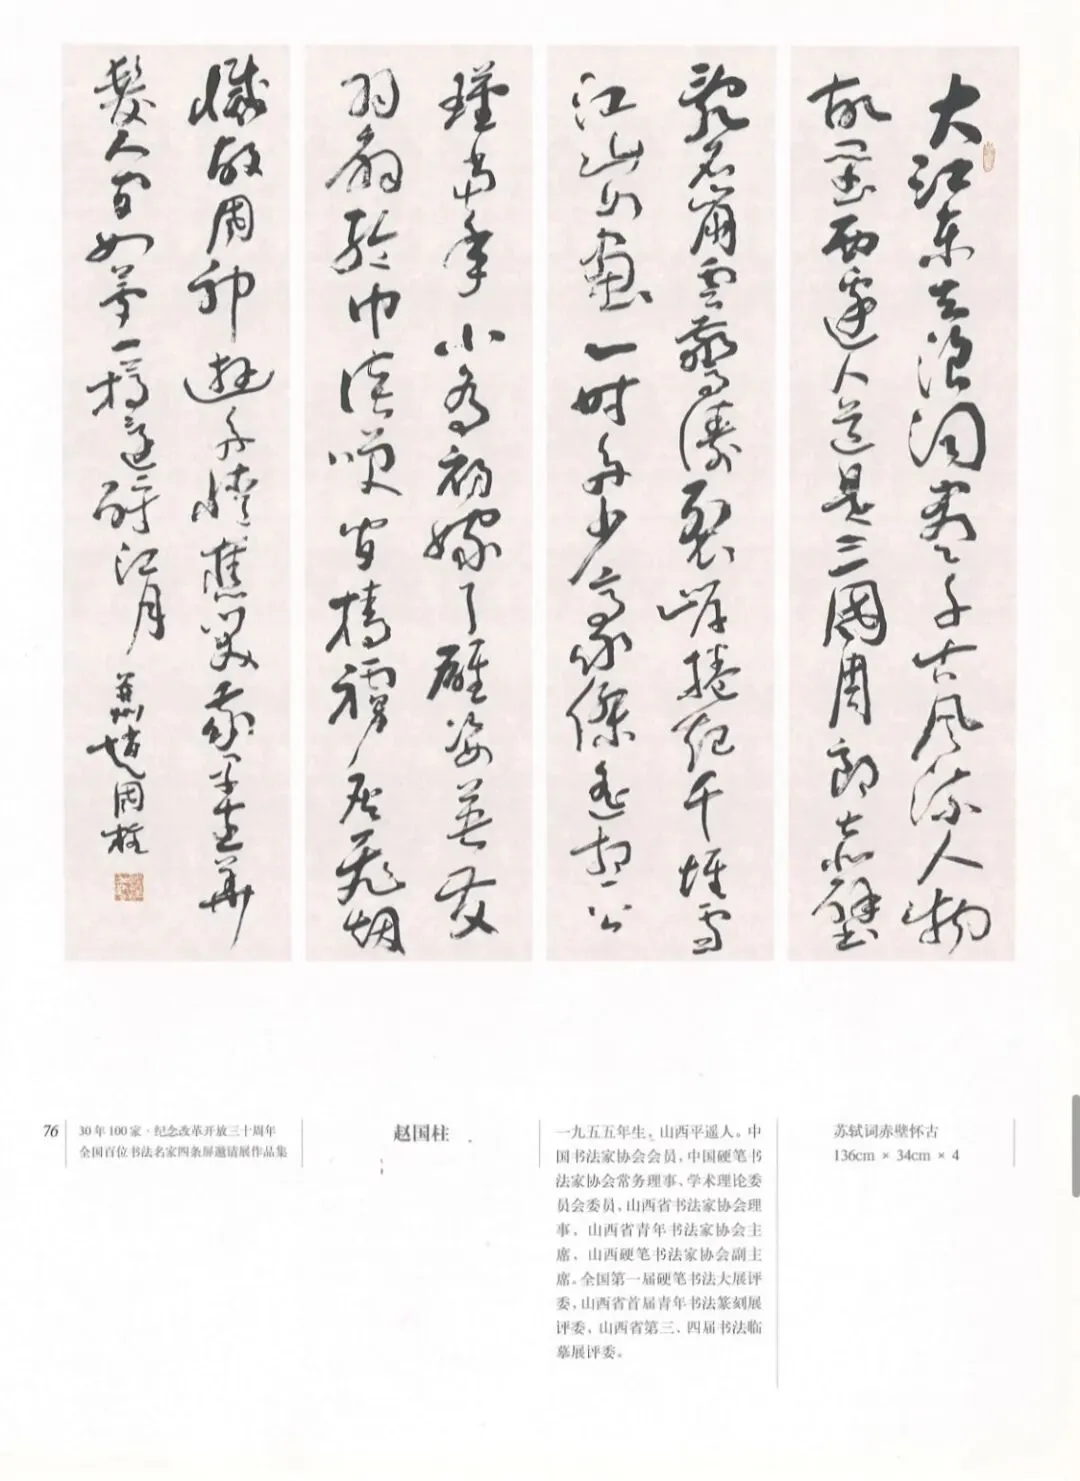 大江東去浪淘盡千古風流人物
故壘西邊人道是三國周郎赤壁
亂石崩雲驚濤裂岸捲起千堆雪
江山如畫一時多少豪傑遙想公
瑾當年小喬初嫁了雄姿英發
羽扇綸巾談笑間檣櫓灰飛烟
滅故國神遊多情應笑我早生華
髮人間如夢一樽還酹江月 趙國柱
76
30年100家·纪念改革开放三十周年
全国百位书法名家四条屏邀请展作品集
赵国柱
一九五五年生，山西平遥人。中
国书法家协会会员，中国硬笔书
法家协会常务理事、学术理论委
员会委员，山西省书法家协会理
事、山西省青年书法家协会主
席、山西硬笔书法家协会副主
席。全国第一届硬笔书法大展评
委，山西省首届青年书法篆刻展
评委、山西省第三、四届书法临
摹展评委。
苏轼词赤壁怀古
136cm × 34cm × 4